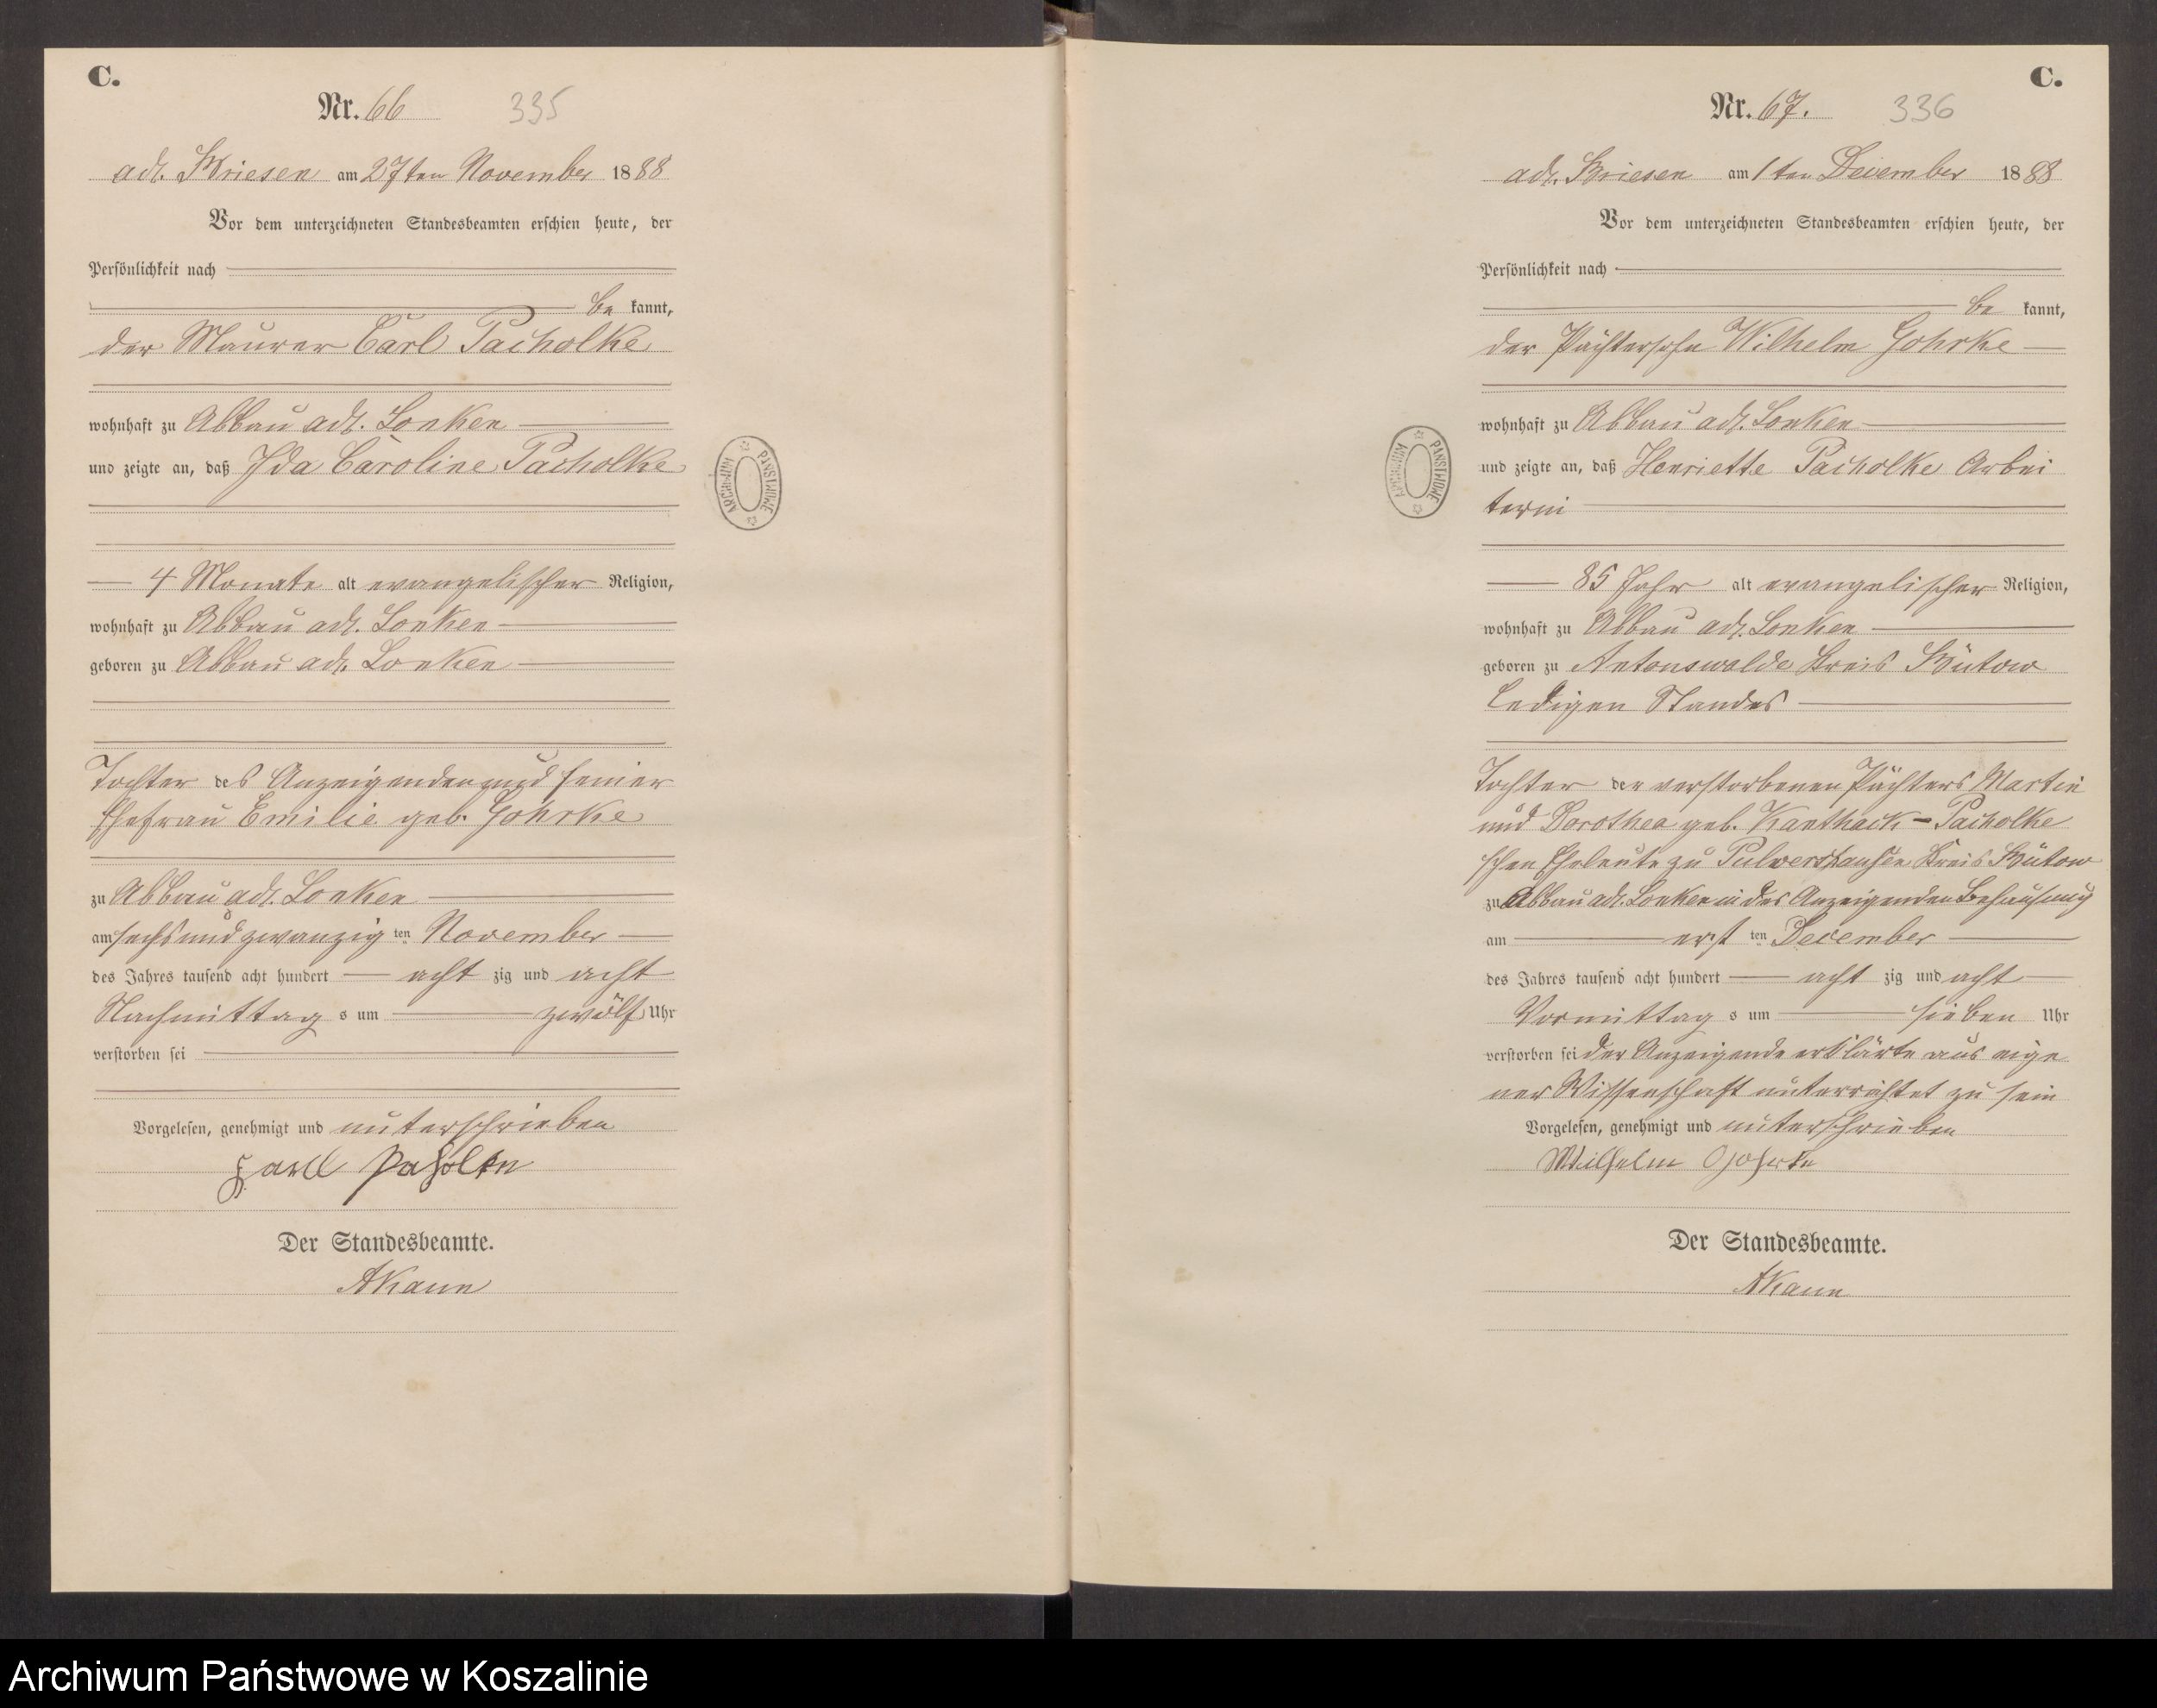 C.
Nr. 66 335
adl. Briesen am 27ten November 1888
Vor dem unterzeichneten Standesbeamten erschien heute, der
Persönlichkeit nach
be kannt,
der Maurer Carl Pacholke
wohnhaft zu Abbau adl. Lonken
und zeigte an, daß Ida Caroline Pacholke
4 Monate alt evangelischer Religion,
wohnhaft zu Abbau adl. Lonken
geboren zu Abbau adl. Lonken
Tochter des Anzeigenden und seiner
Ehefrau Emilie geb. Gohrke
zu Abbau adl. Lonken
am sechs und zwanzig ten November
des Jahres tausend acht hundert acht zig und acht
Nachmittag s um zwölf Uhr
verstorben sei
Vorgelesen, genehmigt und unterschrieben
Karll Paholke
Der Standesbeamte.
AKann
ARCHIWUM PAŃSTWOWE
C.
Nr. 67. 336
adl. Briesen am 1ten December 1888
Vor dem unterzeichneten Standesbeamten erschien heute, der
Persönlichkeit nach
be kannt,
der Pächtersohn Wilhelm Gohrke
wohnhaft zu Abbau adl. Lonken
und zeigte an, daß Henriette Pacholke Arbei
terin
85 Jahr alt evangelischer Religion,
wohnhaft zu Abbau adl. Lonken
geboren zu Antonswalde Kreis Bütow
ledigen Standes
Tochter der verstorbenen Pächters Martin
und Dorothea geb. Kanthack - Pacholke
schen Eheleute zu Pulvershausen Kreis Bütow
zu Abbau adl. Lonken in des Anzeigenden Behausung
am erst ten December
des Jahres tausend acht hundert acht zig und acht
Vormittag s um sieben Uhr
verstorben sei der Anzeigende erklärte aus eige
ner Wissenschaft unterrichtet zu sein
Vorgelesen, genehmigt und unterschrieben
Wilhelm Gohrke
Der Standesbeamte.
AKann
ARCHIWUM PAŃSTWOWE
Archiwum Państwowe w Koszalinie